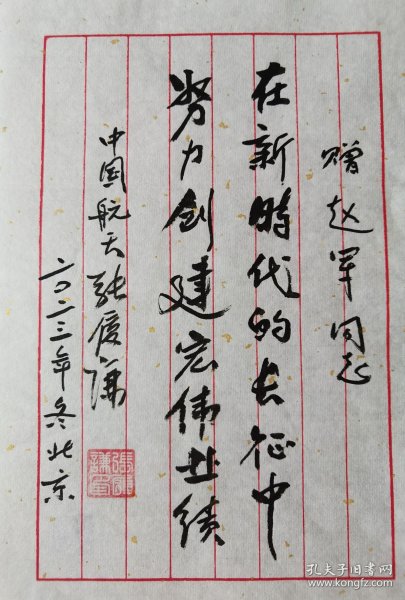 赠赵军同志
在新時代的长征中
努力创建宏伟业绩
中国航天张履谦
二〇二三年冬北京
孔夫子旧书网
www.kongfz.com